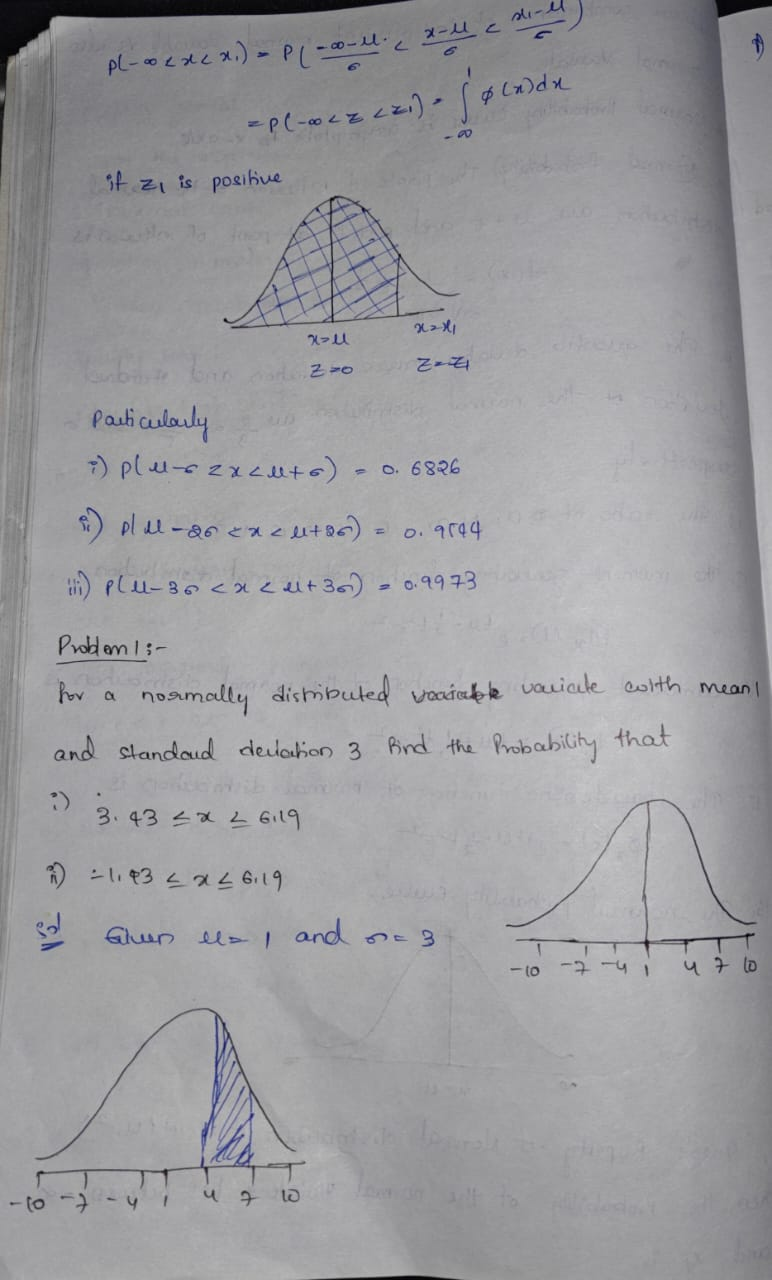 P(-∞ < x < x₁) = P(-∞-μ/σ < x-μ/σ < x₁-μ/σ)
= P(-∞ < z < z₁) = ∫ φ(x)dx
1
-∞
if z₁ is positive
x=μ
x=x₁
z=0
z=z₁
Particularly
i) P(μ-σ < x < μ+σ) = 0.6826
ii) P(μ-2σ < x < μ+2σ) = 0.9544
iii) P(μ-3σ < x < μ+3σ) = 0.9973
Problem 1 :-
For a normally distributed variate with mean 1
and standard deviation 3 Find the Probability that
i) 3.43 ≤ x ≤ 6.19
ii) -1.43 ≤ x ≤ 6.19
Sol Given μ = 1 and σ = 3
-10 -7 -4 1 4 7 10
-10 -7 -4 1 4 7 10